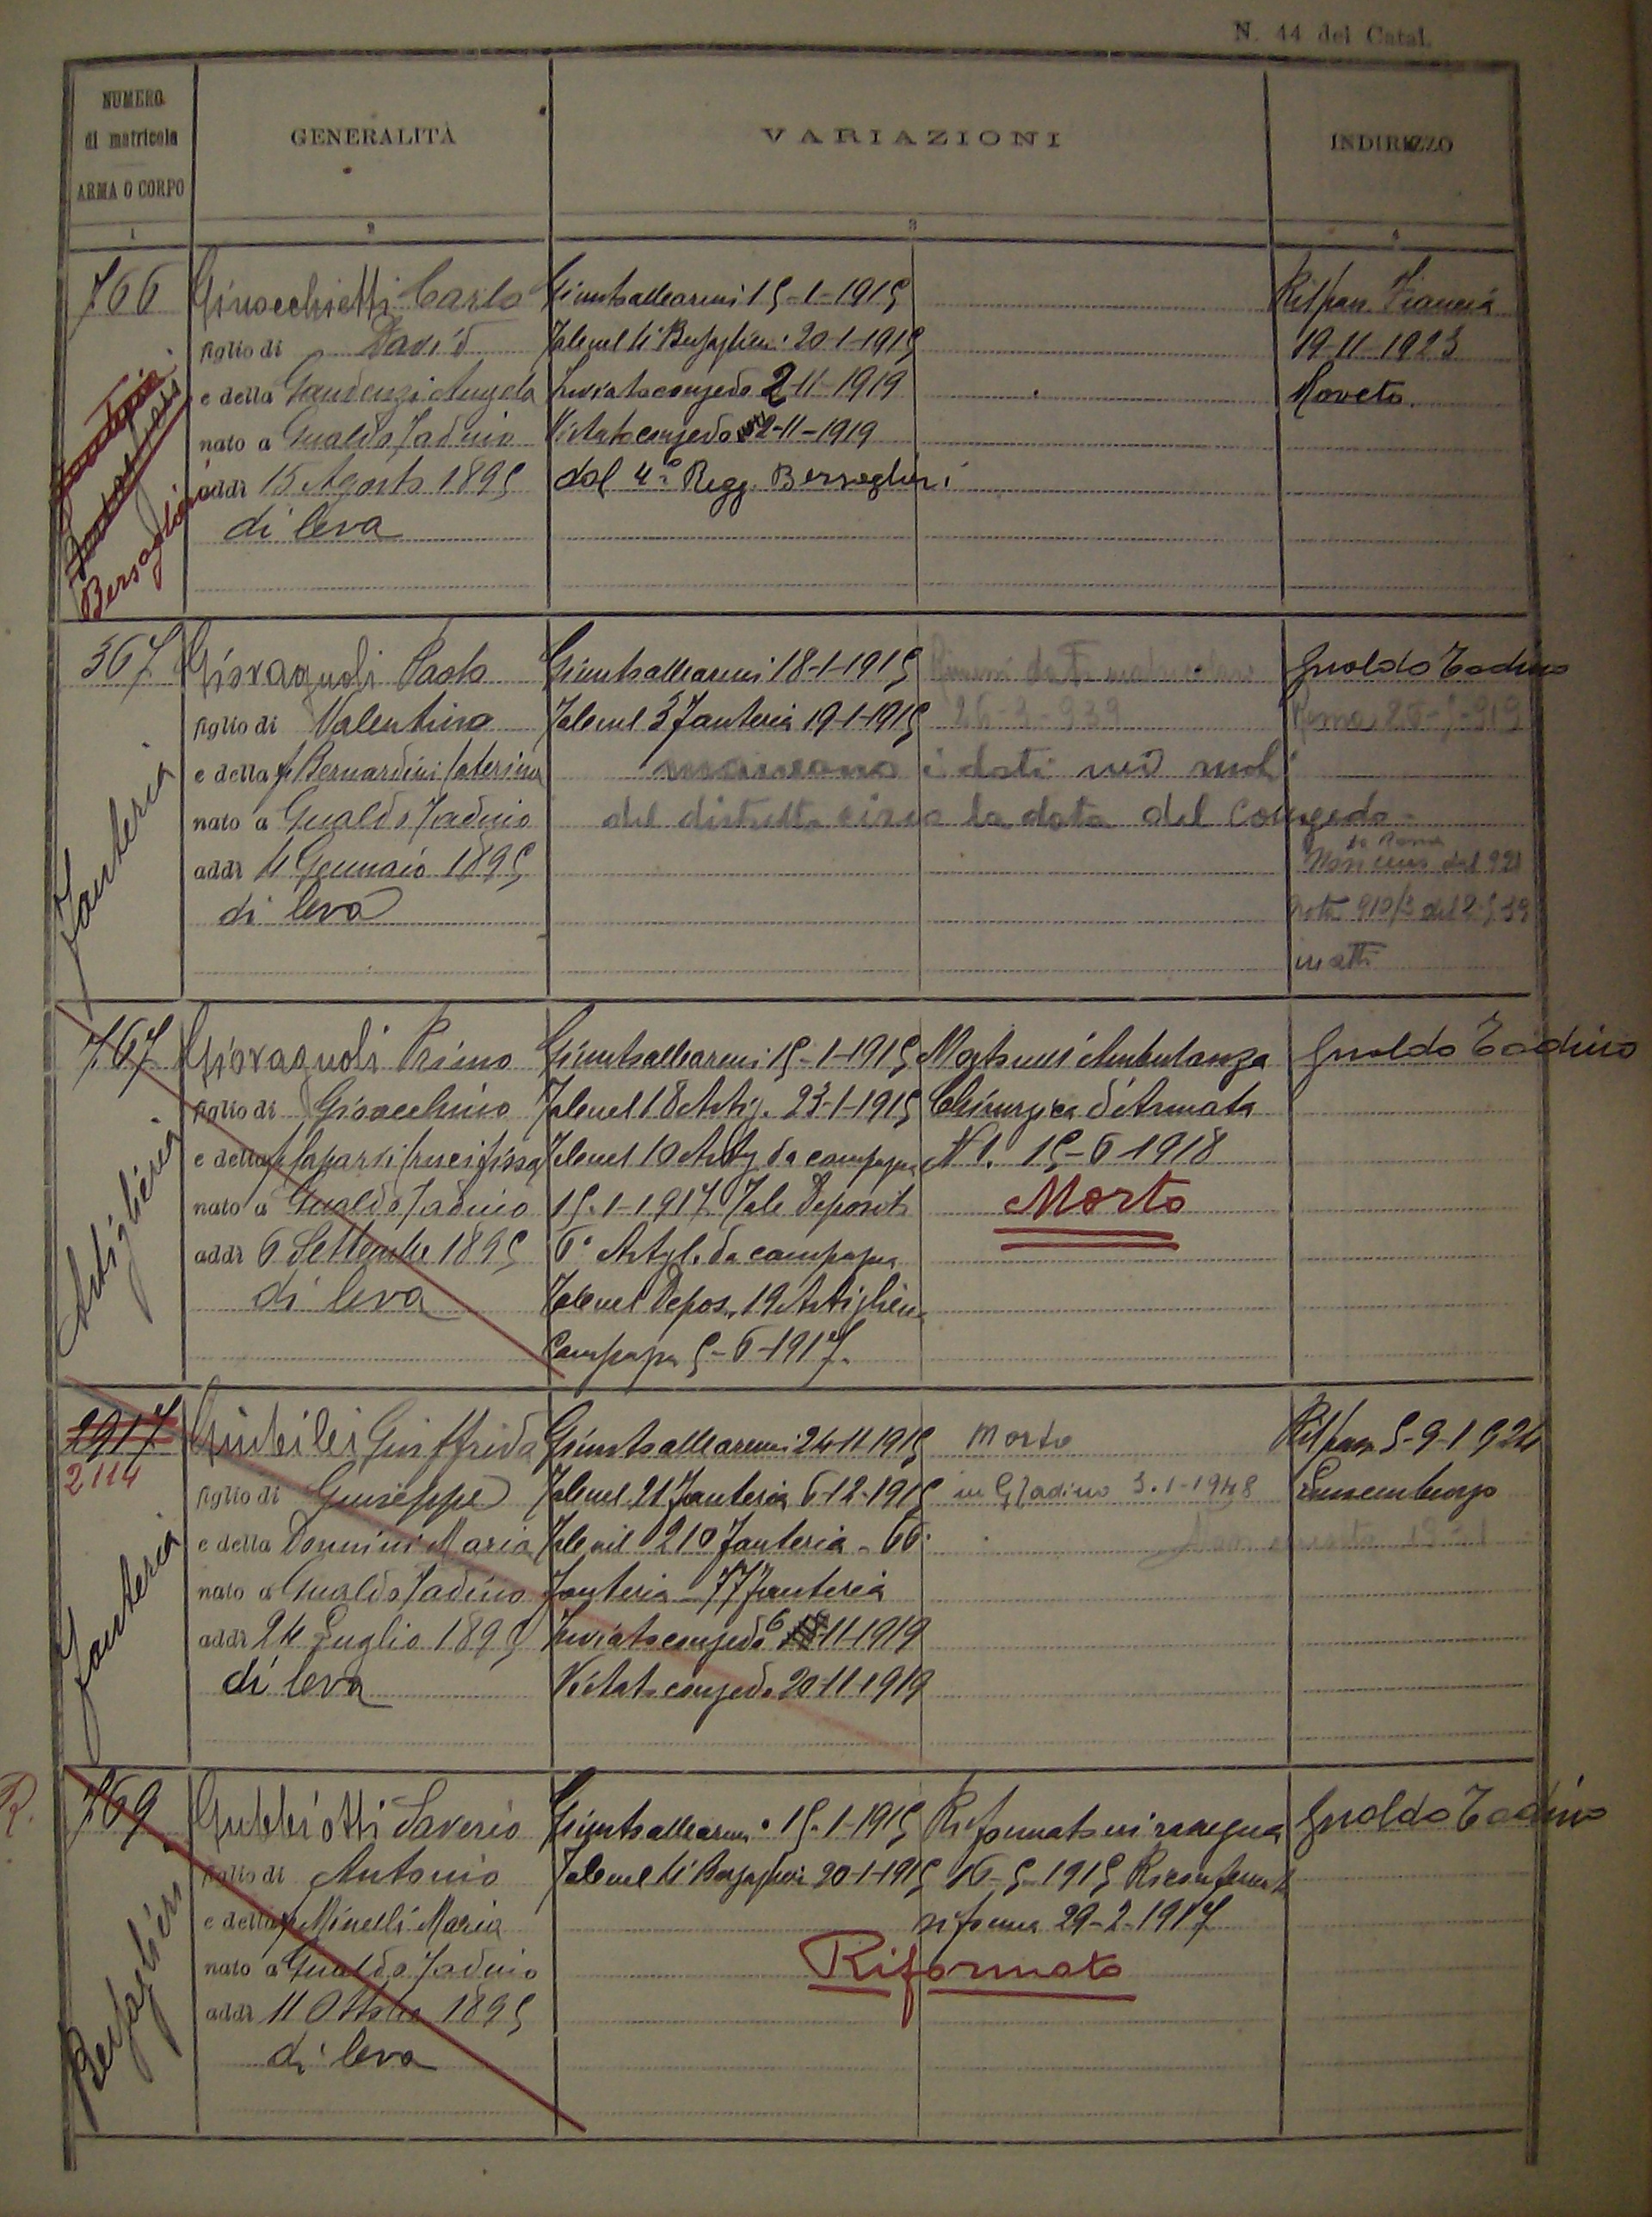 N. 44 del Catal.
NUMERO
di matricola
ARMA O CORPO
GENERALITÀ
VARIAZIONI
INDIRIZZO
1
2
3
4
766
Bersaglieri
Ginocchietti Carlo
figlio di David
e della Gaudenzi Angela
nato a Gualdo Tadino
addì 15 Agosto 1895
di leva
Giunto alle armi 15-1-1915
Tale nel 4 Bersaglieri 20-1-1915
Inviato congedo 2-11-1919
Vistato congedo 2-11-1919
dal 4° Regg. Bersaglieri
Ril pass. Francia
19-11-1923
Moveto
367
Fanteria
Giovagnoli Paolo
figlio di Valentino
e della f Bernardini Caterina
nato a Gualdo Tadino
addì 4 Gennaio 1895
di leva
Giunto alle armi 18-1-1915
Tale nel 3 Fanteria 19-1-1915
26-3-939
mancano i dati nei ruoli
del distretto circa la data del congedo
Gualdo Tadino
Roma
da Roma
dal 921
Nota 910/3 del 2-5-39
in atti
767
Artiglieria
Giovagnoli Primo
figlio di Giovacchino
e della f Saparsi Crucifissa
nato a Gualdo Tadino
addì 6 Settembre 1895
di leva
Giunto alle armi 15-1-1915
Tale nel 18 Artig. 23-1-1915
Tale nel 10 Artig da campagna
15-1-1917 Tale Deposito
6° Artigl. da campagna
Tale nel Depos. 19 Artiglieria
Campagna 5-6-1917.
Morto nell'Ambulanza
Chirurgica d'Armata
N 1. 15-6-1918
Morto
Gualdo Tadino
2917
2114
Fanteria
Giubilei Giuffrida
figlio di Giuseppe
e della Donnini Maria
nato a Gualdo Tadino
addì 24 Luglio 1895
di leva
Giunto alle armi 24-11-1915
Tale nel 21 Fanteria 6-12-1915
Tale nel 210 Fanteria - 66
Fanteria - 77 Fanteria
Inviato congedo 6 11-1919
Vistato congedo 20-11-1919
Morto
in G Tadino 3-1-1948
Ril pass. 5-9-1924
Lussemburgo
R.
769
Bersaglieri
Gubbiotti Saverio
figlio di Antonio
e della f Minelli Maria
nato a Gualdo Tadino
addì 11 Ottobre 1895
di leva
Giunto alle armi 15-1-1915
Tale nel 4 Bersaglieri 20-1-1915
Riformato in rassegna
16-5-1915 Riconfermata
riforma 29-2-1917
Riformato
Gualdo Tadino